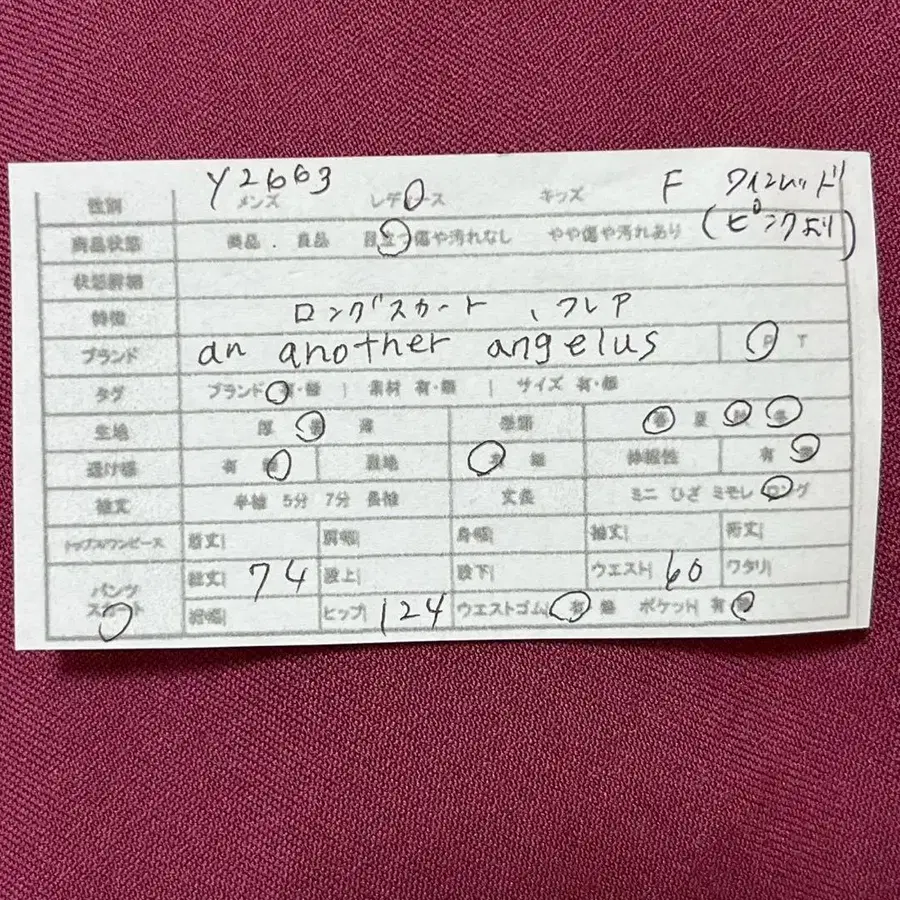 Y2663 F ワインレッド
性別 メンズ レディース キッズ (ピンクより)
商品状態 美品 . 良品 目立つ傷や汚れなし やや傷や汚れあり
状態詳細
特徴 ロングスカート 、フレア
ブランド an another angelus P T
タグ ブランド 有・無 | 素材 有・無 | サイズ 有・無
生地 厚 普 薄 季節 春 夏 秋 冬
透け感 有 無 裏地 有 無 伸縮性 有 無
袖丈 半袖 5分 7分 長袖 丈長 ミニ ひざ ミモレ ロング
トップス/ワンピース 着丈| 肩幅| 身幅| 袖丈| 裄丈|
パンツ 総丈| 74 股上| 股下| ウエスト| 60 ワタリ|
スカート 裾幅| ヒップ| 124 ウエストゴム| 有 無 ポケット| 有 無